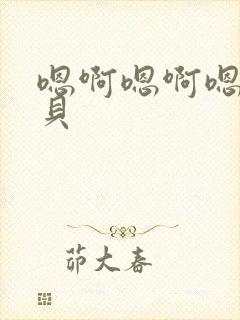 嗯啊嗯啊嗯
員
茆大春